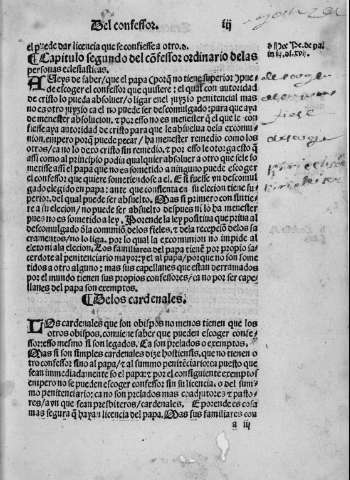 Del confessor. iij
el puede dar licencia que se confiesse a otro.
Capitulo segundo del cõfessor ordinario delas
personas eclesiasticas.
A Eleys de saber/que el papa (porq̃ no tiene superior) pue
de escoger el confessor que quisiere: el qual con autoridad
de cristo lo pueda absoluer/o ligar enel juyzio penitencial mas
no en otro juyzio ca el no puede ser descomulgado: para que aya
de menester absolucion. y por esso no es menester q̃ el que le con
fiesse aya autoridad de cristo para que le absuelua dela excomu
nion. empero porq̃ puede pecar/ha menester remedio como los
otros/ca no lo dexo cristo sin remedio. y por esso le otorga esto q̃
assi como al principio podia qualquier absoluer a otro que se le so
metiesse assi el papa que no es sometido a ninguno puede escoger
el confessor que quiere sometiendose a el. E si fuesse vn descomul
gado elegido en papa: ante que consienta en su elecion tiene su
perior, del qual puede ser absuelto. Mas si primero consintie
re a su elecion/no puede ser absuelto despues ni lo ha menester
pues no es sometido a ley. Porende la ley positiua que priua al
descomulgado dela comunion delos fieles, y dela recepciõ delos sa
cramentos/no lo liga. por lo qual la excomunion no impide al
eleto ni ala elecion. Los familiares del papa tienẽ por propio sa
cerdote al penitenciario mayor: y el al papa/porque no son some
tidos a otro alguno: mas sus capellanes que estan derramados
por el mundo tienen sus propios confessores/ca no por ser cape
llanes del papa son exemptos.
Delos cardenales.
LOs cardenales que son obispos no menos tienen que los
otros obispos. conuiene saber que pueden escoger confe-
ssor: esso mesmo si son legados. Ca son prelados o exemptos.
Mas si son simples cardenales dize hostiensis, que no tienen o
tro confessor sino al papa/ y al summo penitẽciario: ca puesto que
sean inmediadamente so el papa: y por el consiguiente exemptos
empero no se pueden escoger confessor sin su licencia. o del sum
mo penitenciario: ca no son prelados mas coadjutores y pasto
res/avn que sean presbiteros/cardenales. E porende es cosa
mas segura q̃ hayan licencia del papa. Mas sus familiares con
a iij